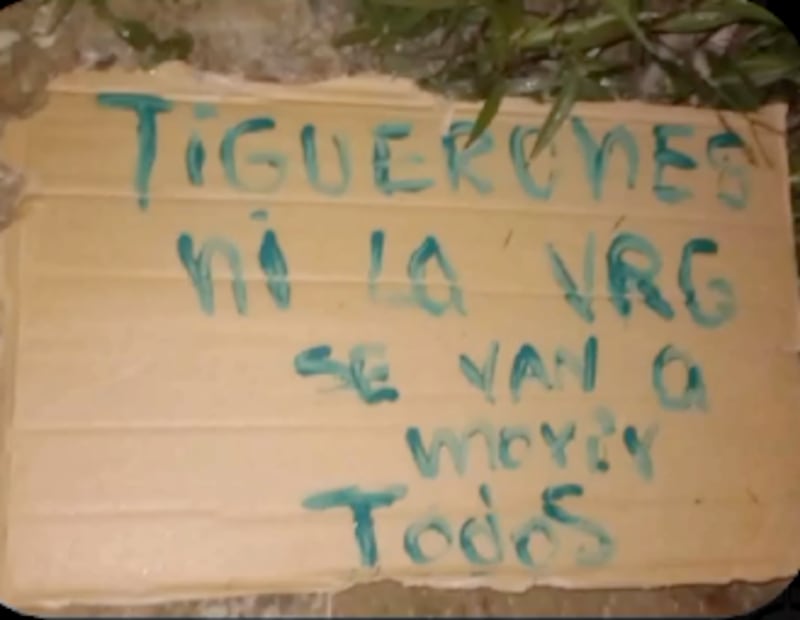 TiGUERONES
Ni LA VRG
SE VAN a
morir
TodoS